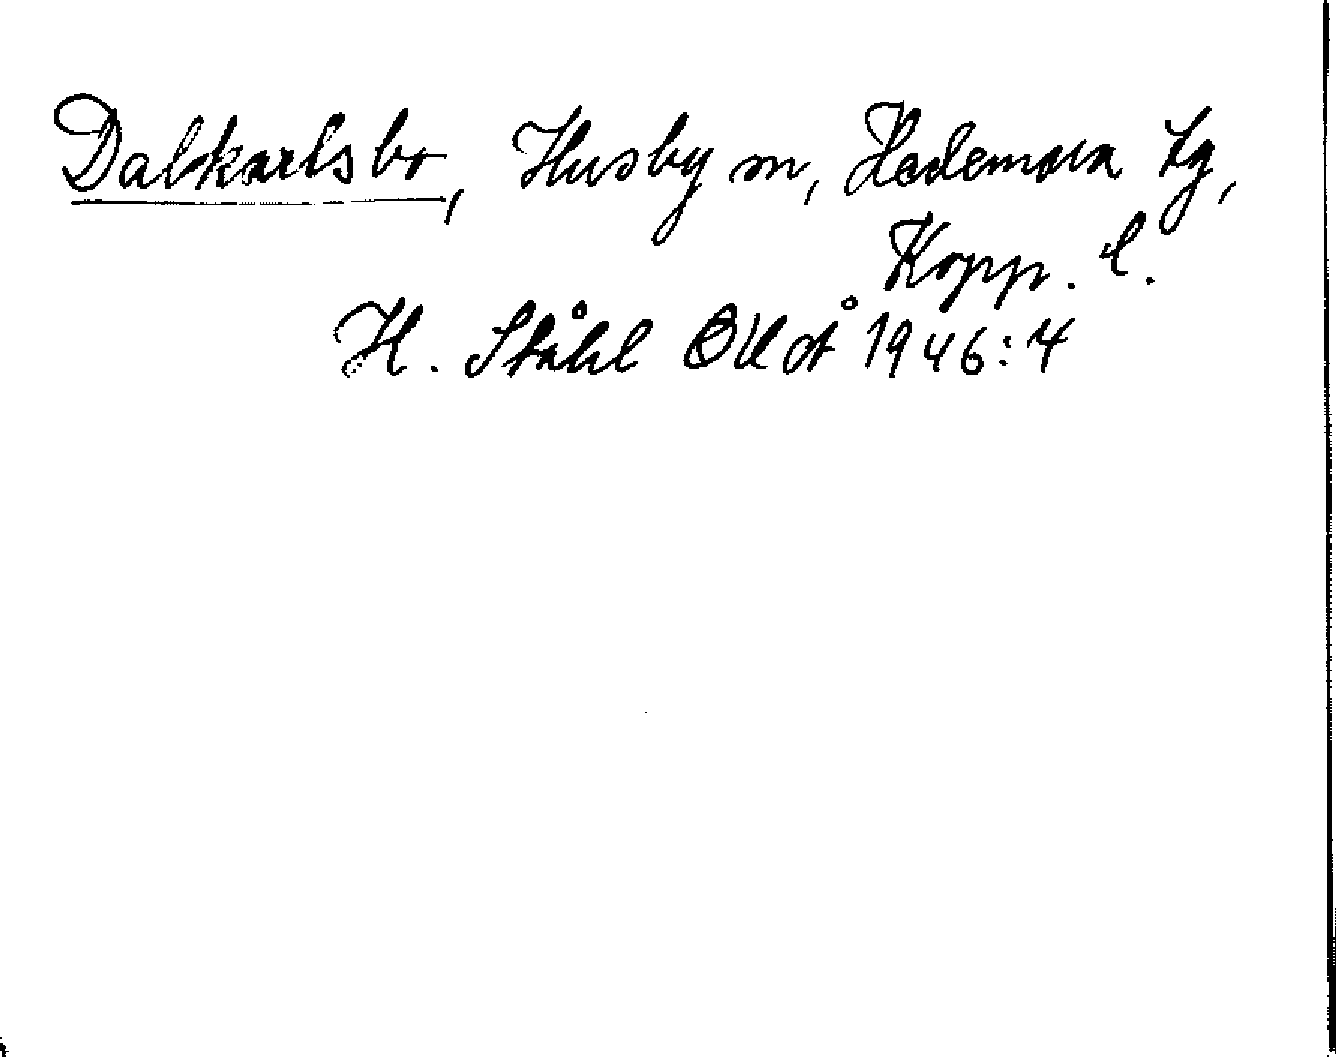 Dalkarlsbo, Husby sn, Hedemora tg,
Kopp. l.
H. Ståhl OUÅ 1946:4